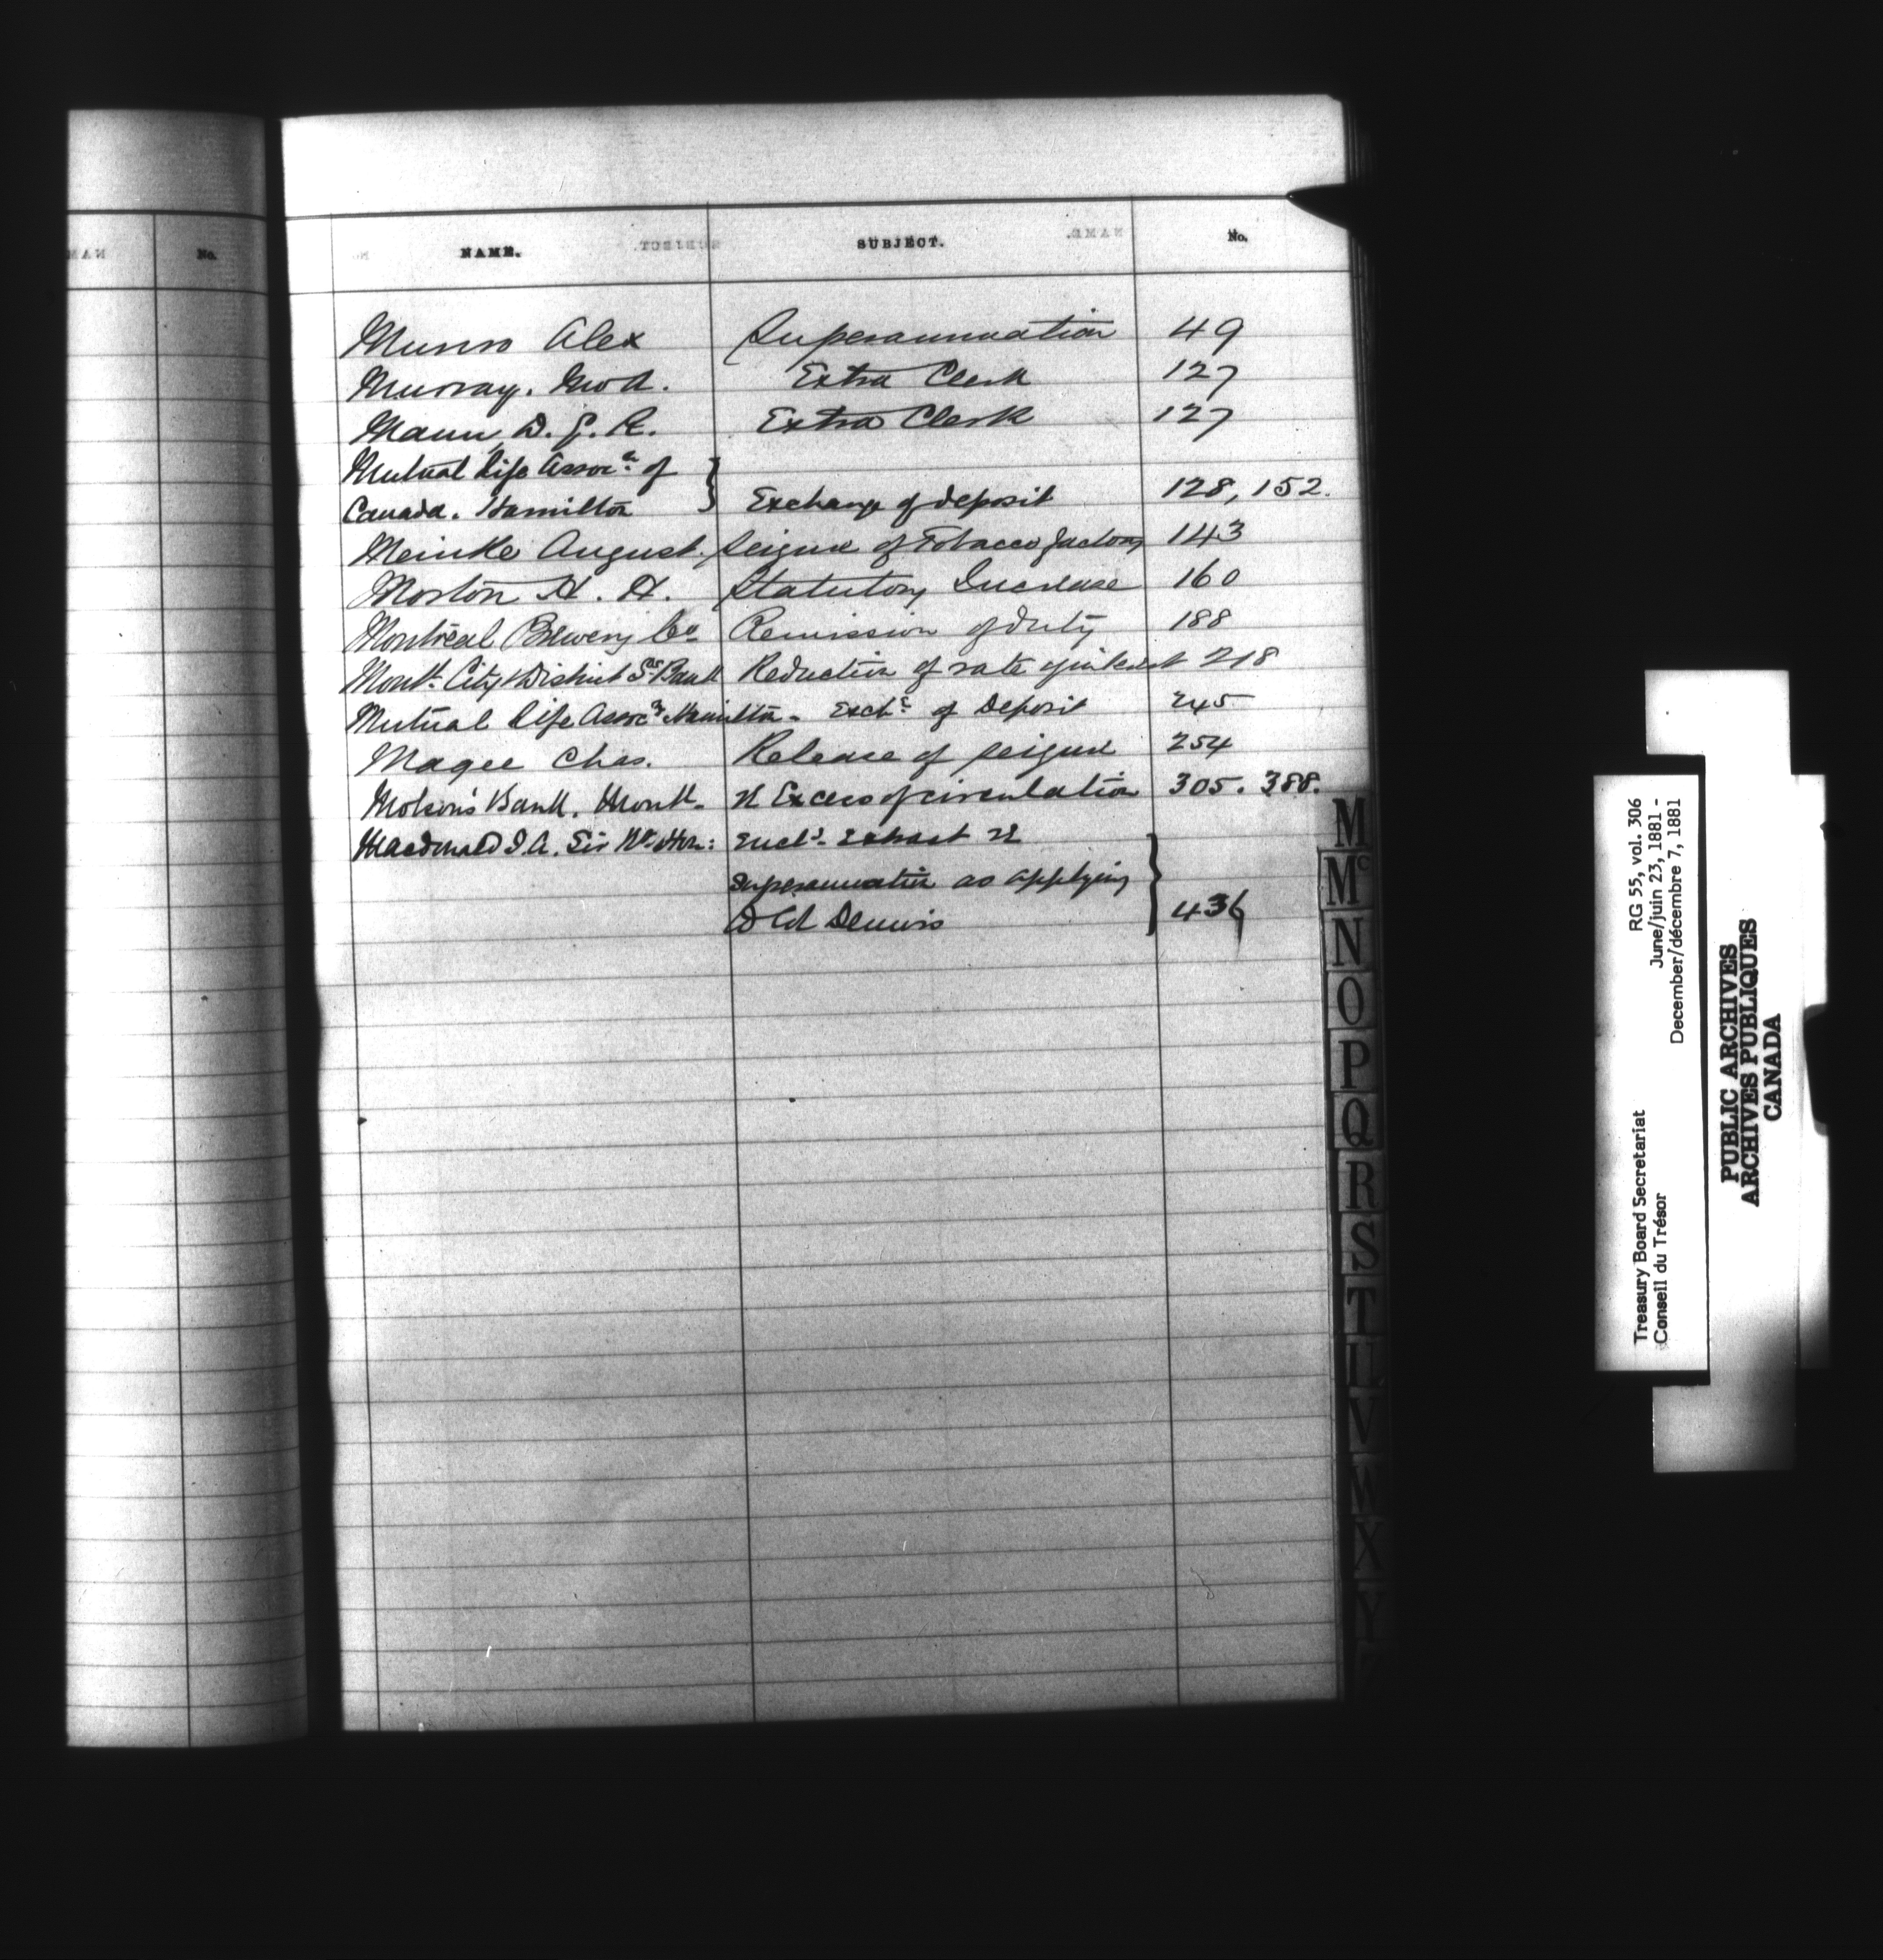 NAME. SUBJECT. No.
No.
Munro Alex Superannuation 49
Murray. Extra Clerk 127
Mann, D. J. R. Extra Clerk 127
Mutual Life Assocn. of
Canada. Hamilton } Exchange of deposit 128, 152.
Meinke August. Seizure of Tobacco factory 143
Morton H. H. Statutory Increase 160
Montreal Brewery Co. Remission of duty 188
Montl. City & District Sgs Bank Reduction of rate of interest 218
Mutual Life Assocn. Hamilton - Exche. of Deposit 245
Magee Chas. Release of seizure 254
Molson's Bank. Montl. re Excess of circulation 305. 388.
Macdonald J. A. Sir Rt. Hon: Encls. extract re
superannuation as applying
to Col Dennis } 436
M
Mc
N
O
P
Q
R
S
T
U
V
W
X
Y
Treasury Board Secretariat RG 55, vol. 306
Conseil du Trésor June/juin 23, 1881 -
December/décembre 7, 1881
PUBLIC ARCHIVES
ARCHIVES PUBLIQUES
CANADA